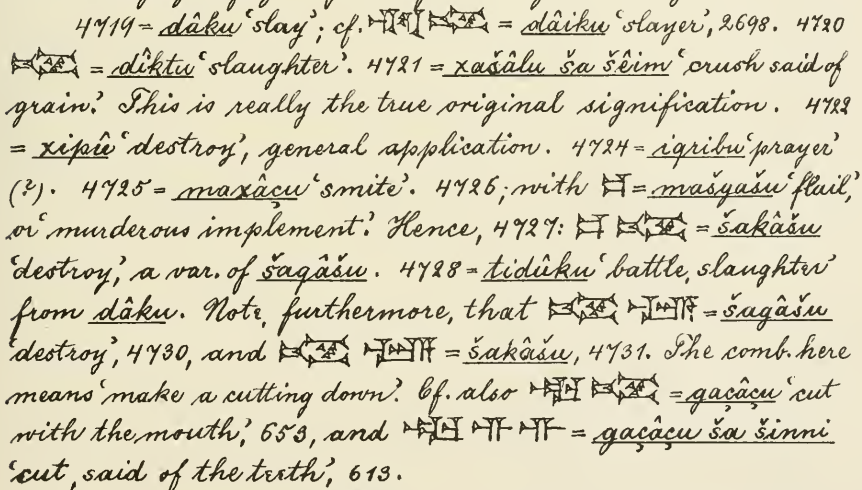 4719 = dâku ‘slay’; cf. 𒄤 = dâiku ‘slayer’, 2698. 4720
𒄤 = dîktu ‘slaughter’. 4721 = xašâlu ša šêim ‘crush said of
grain’. This is really the true original signification. 4722
= xipû ‘destroy’, general application. 4724 = iqribu ‘prayer’
(?). 4725 = maxâçu ‘smite’. 4726, with 𒄑 = mašgašu ‘flail,’
or ‘murderous implement’. Hence, 4727: 𒄑 𒄤 = šakâšu
‘destroy’, a var. of šagâšu. 4728 = tidûku ‘battle, slaughter’
from dâku. Note, furthermore, that 𒄤 = šagâšu
‘destroy’, 4730, and 𒄤 = šakâšu, 4731. The comb. here
means ‘make a cutting down’. Cf. also 𒅗 𒄤 = gaçâçu ‘cut
with the mouth,’ 653, and = gaçâçu ša šinni
‘cut, said of the teeth’, 613.